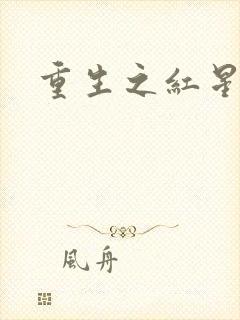 重生之紅星
風舟